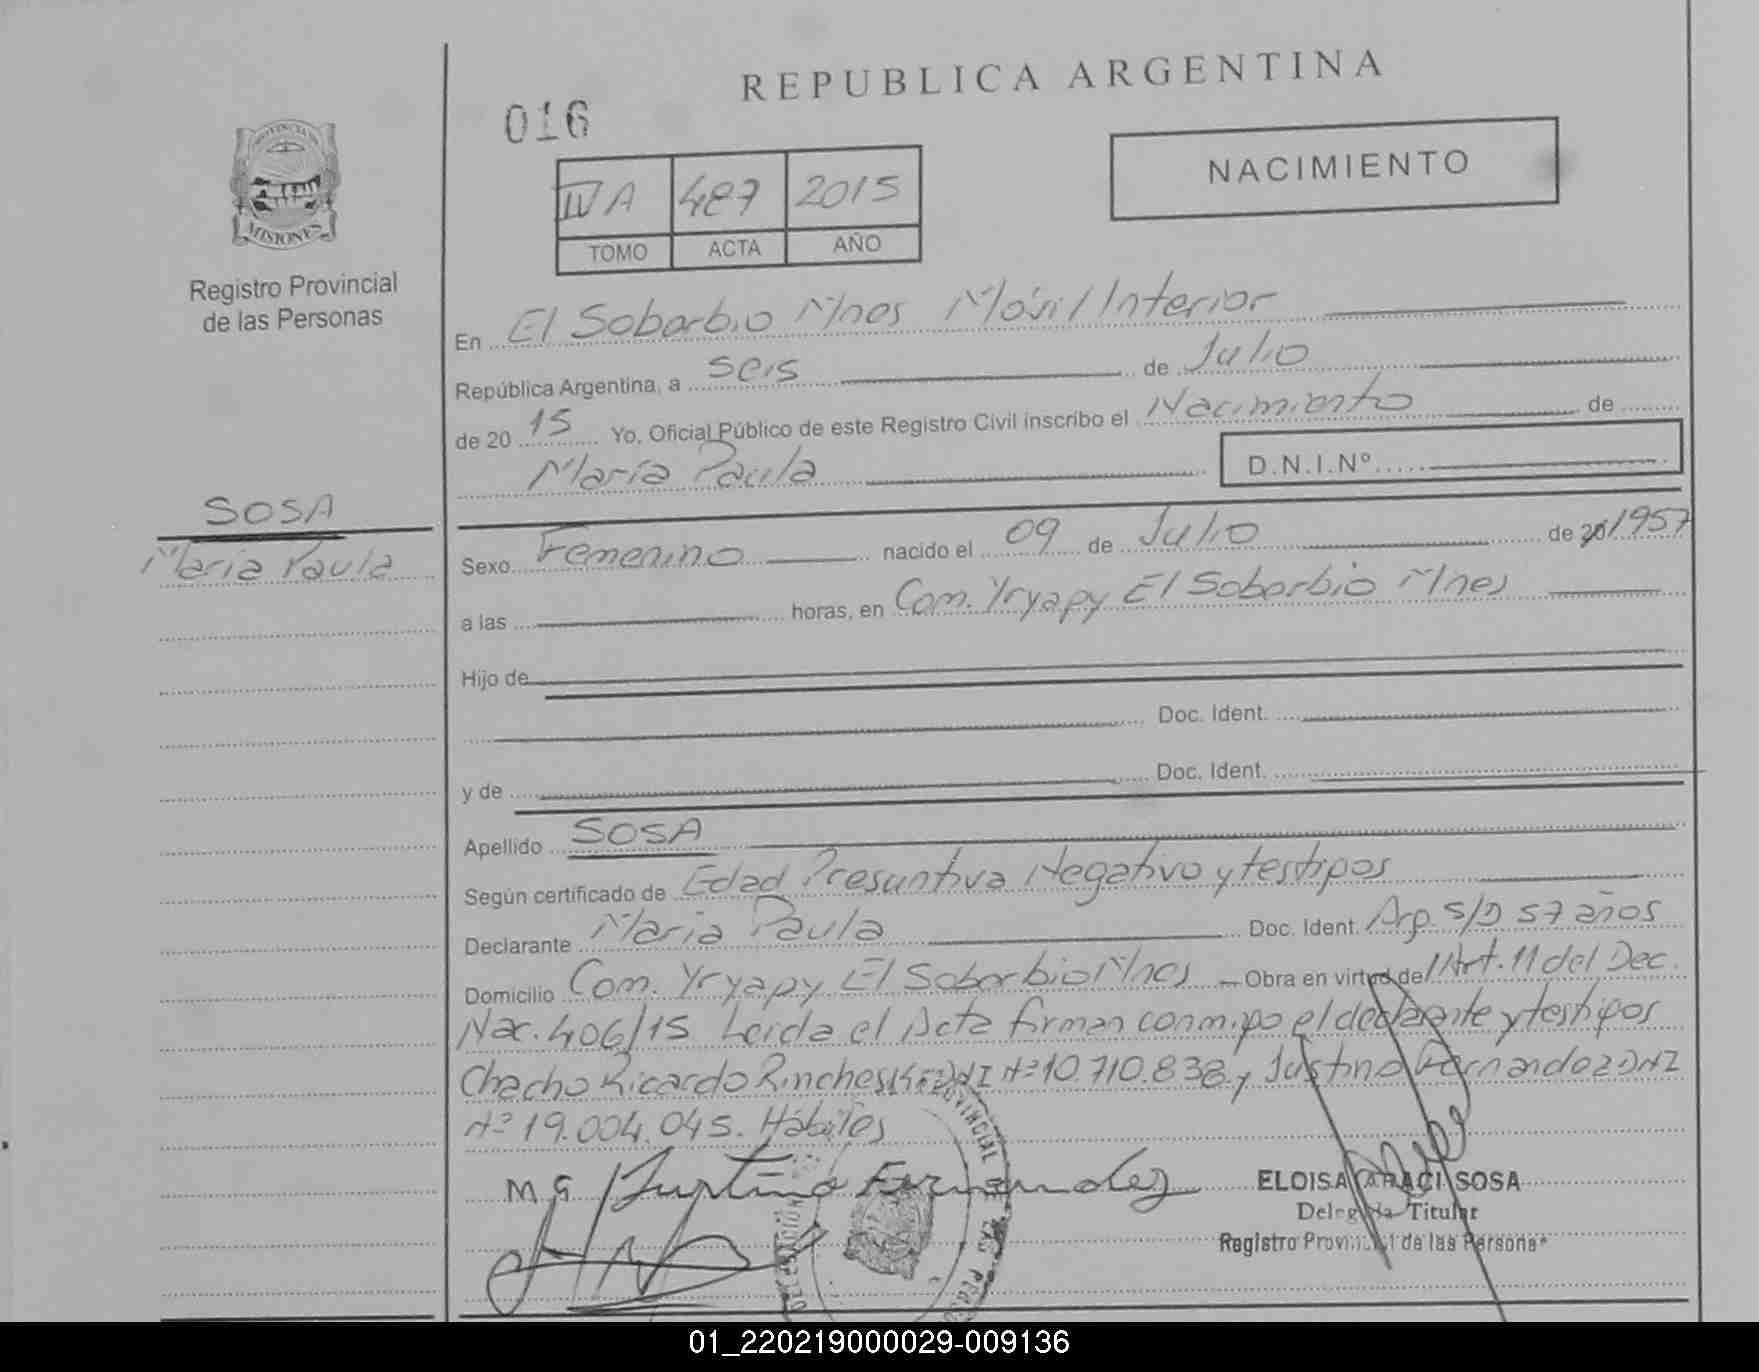 REPUBLICA ARGENTINA
016
NACIMIENTO
IV A 487 2015
TOMO ACTA AÑO
PROVINCIA DE
MISIONES
Registro Provincial
de las Personas
En El Soborbio Mnes Móvil Interior
República Argentina, a seis de Julio
de 20 15 Yo, Oficial Público de este Registro Civil inscribo el Nacimiento de
María Paula D.N.I.Nº
SOSA
María Paula
Sexo Femenino nacido el 09 de Julio de 20/1957
a las horas, en Com. Yryapy El Soborbio Mnes
Hijo de
Doc. Ident.
y de Doc. Ident.
Apellido SOSA
Según certificado de Edad Presuntiva Negativo y testigos
Declarante María Paula Doc. Ident. Arg. S/D 57 años
Domicilio Com. Yryapy El Soborbio Mnes Obra en virtud del Art. 11 del Dec.
Nac. 406/15 Leida el Acta firman conmigo el declarante y testigos
Chacho Ricardo DNI Nº 10.710.838 y Justino Fernandez DNI
Nº 19.004.045. Hábiles
M G Justino Fernandez
ELOISA ARACI SOSA
Delegada Titular
Registro Provincial de las Personas
01_220219000029-009136